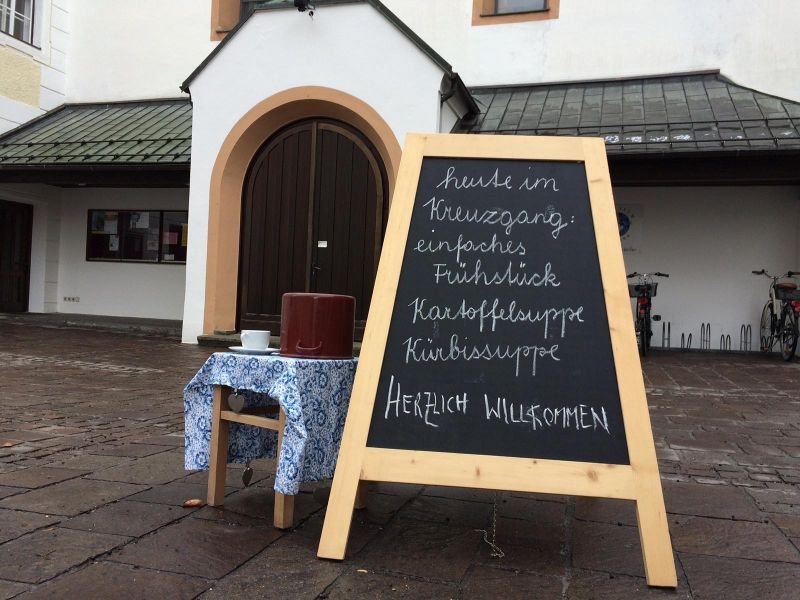 heute im
Kreuzgang:
einfaches
Frühstück
Kartoffelsuppe
Kürbissuppe
HERZLICH WILLKOMMEN